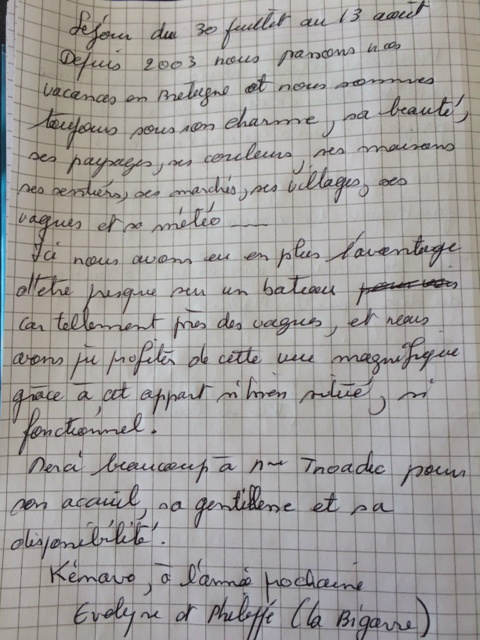 Séjour du 30 juillet au 13 août
Depuis 2003 nous passons nos
vacances en Bretagne et nous sommes
toujours sous son charme, sa beauté,
ses paysages, ses couleurs, ses maisons
ses sentiers, ses marchés, ses villages, ses
vagues et sa météo ......
Ici nous avons eu en plus l'avantage
d'être presque sur un bateau
car tellement près des vagues, et nous
avons pu profiter de cette vue magnifique
grâce à cet appart si bien situé, si
fonctionnel.
Merci beaucoup à Mme pour
son accueil, sa gentillesse et sa
disponibilité.
Kénavo, à l'année prochaine
Evelyne et Philippe (la Bigarre)